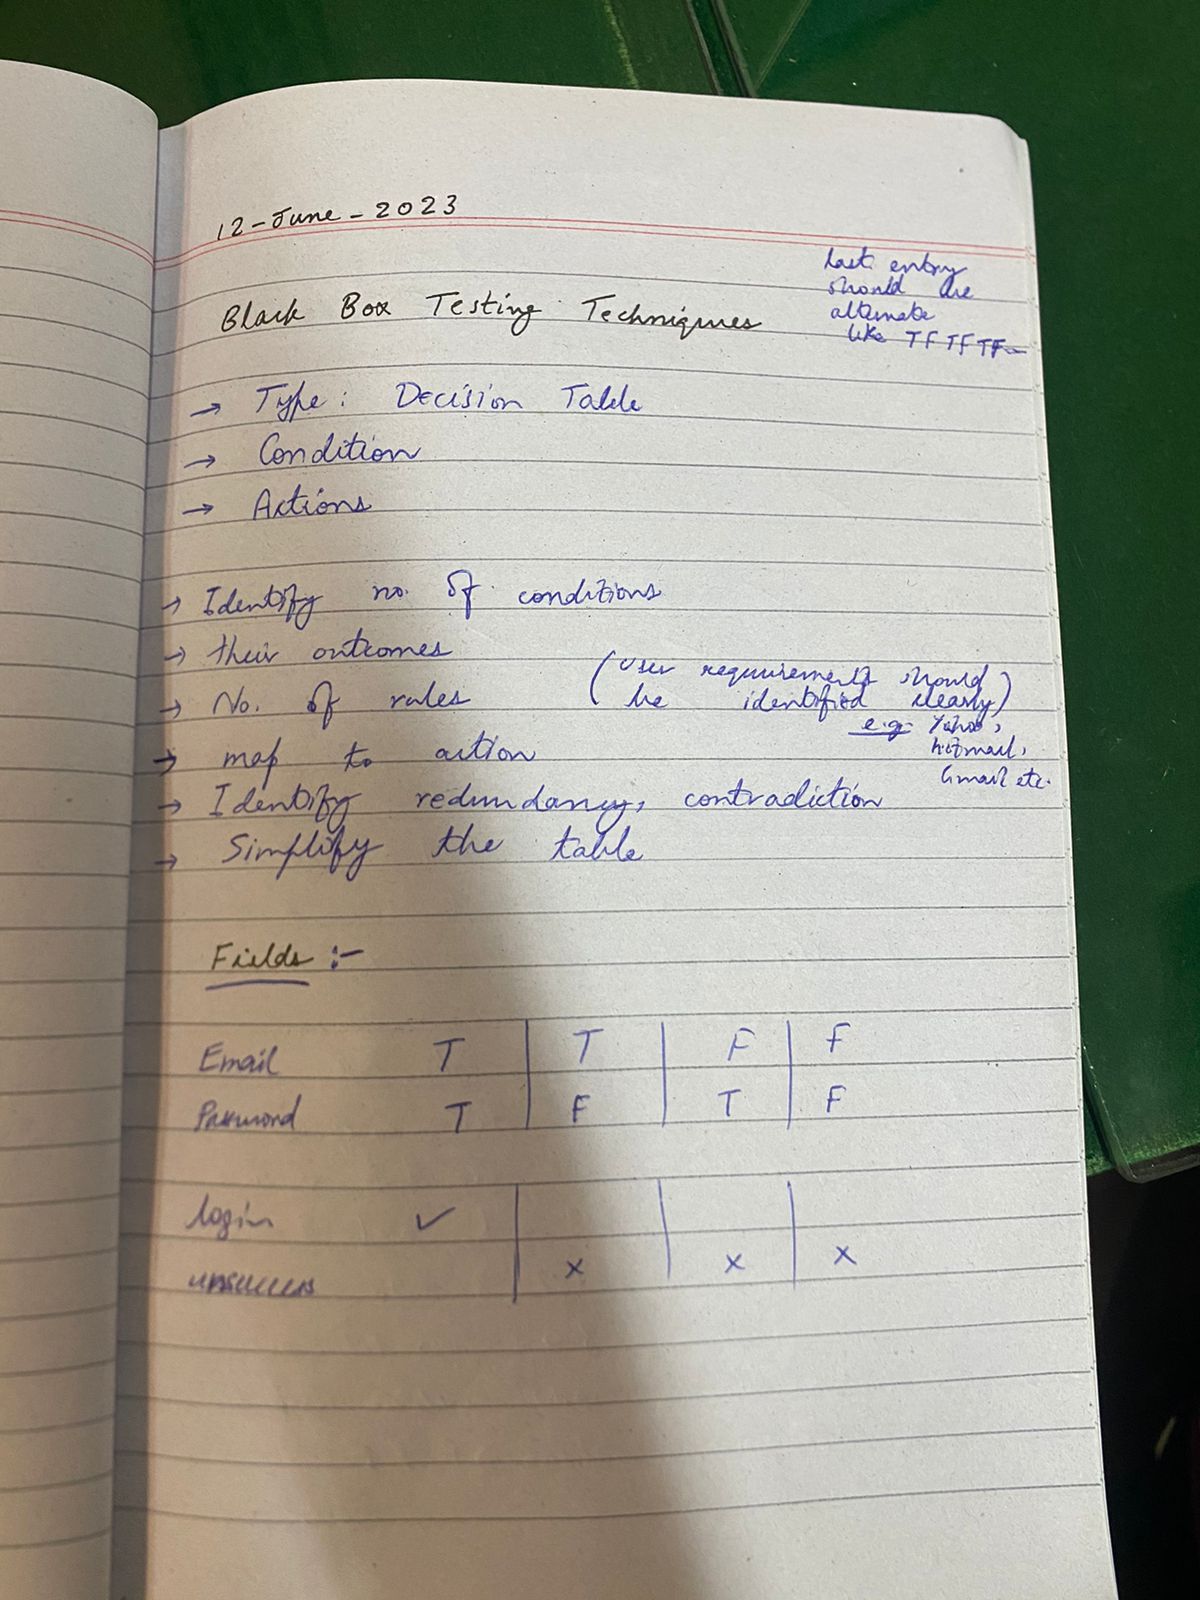 12-June-2023
Last entry
should be
alternate
like TF TF TF
Black Box Testing Techniques
→ Type: Decision Table
→ Condition
→ Actions
→ Identify no. of conditions
→ their outcomes
→ No. of rules (User requirements should
be identified clearly)
e.g. Yahoo,
hotmail,
Gmail etc.
→ map to action
→ Identify redundancy, contradiction
→ Simplify the table
Fields :-
Email T | T | F | F
Password T | F | T | F
login ✓
unsuccess x | x | x